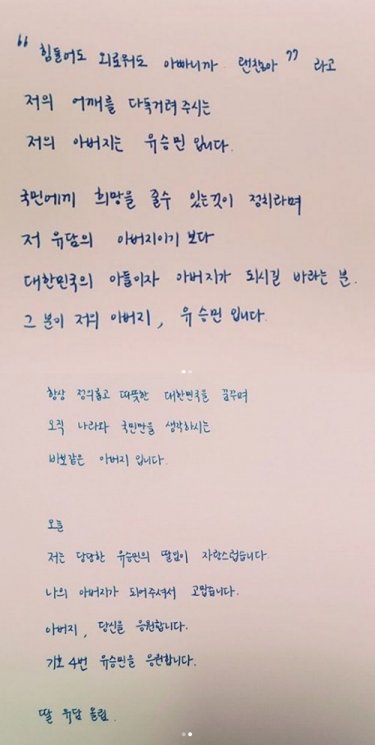 "힘들어도 외로워도 아빠니까 괜찮아" 라고
저의 어깨를 다독거려 주시는
저의 아버지는 유승민 입니다.
국민에게 희망을 줄수 있는것이 정치라며
저 유담의 아버지이기 보다
대한민국의 아들이자 아버지가 되시길 바라는 분.
그 분이 저의 아버지, 유승민 입니다.
항상 정의롭고 따뜻한 대한민국을 꿈꾸며
오직 나라와 국민만을 생각하시는
바보같은 아버지 입니다.
오늘
저는 당당한 유승민의 딸임이 자랑스럽습니다.
나의 아버지가 되어주셔서 고맙습니다.
아버지, 당신을 응원합니다.
기호 4번 유승민을 응원합니다.
딸 유담 올림.